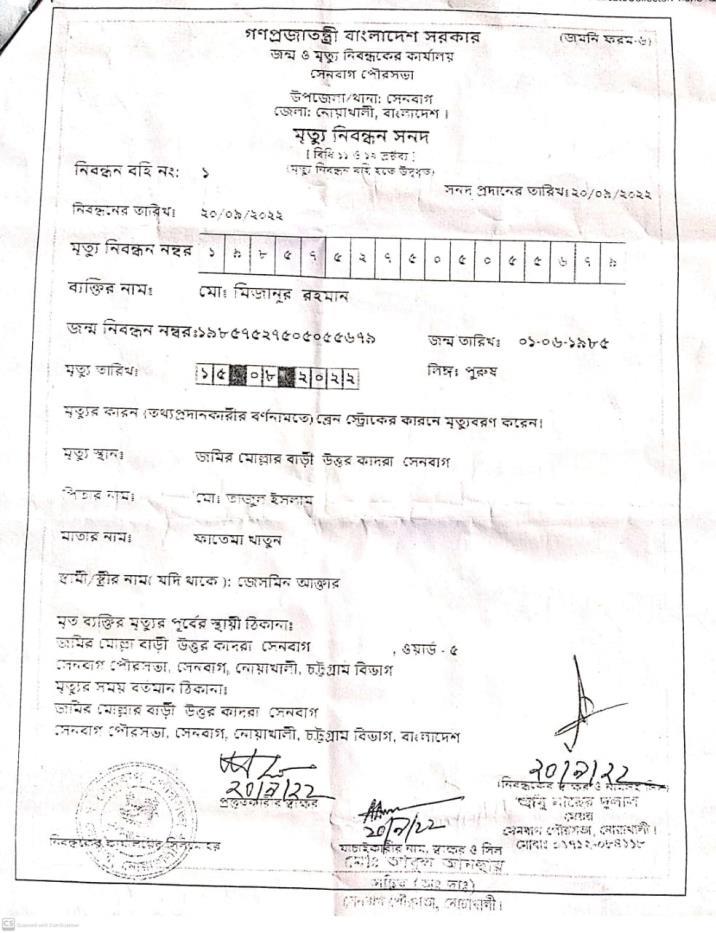 গণপ্রজাতন্ত্রী বাংলাদেশ সরকার
(জমনি ফরম-৬)
জন্ম ও মৃত্যু নিবন্ধকের কার্যালয়
সেনবাগ পৌরসভা
উপজেলা/থানা: সেনবাগ
জেলা: নোয়াখালী, বাংলাদেশ ।
মৃত্যু নিবন্ধন সনদ
[ বিধি ১১ ও ১২ দ্রষ্টব্য ]
(মৃত্যু নিবন্ধন বহি হতে উদ্ধৃত)
নিবন্ধন বহি নং: ১
সনদ প্রদানের তারিখ: ২০/০৯/২০২২
নিবন্ধনের তারিখ: ২০/০৯/২০২২
মৃত্যু নিবন্ধন নম্বর ১ ৯ ৮ ৫ ৭ ৫ ২ ৭ ৫ ০ ৫ ০ ৫ ৫ ৬ ৭ ৯
ব্যক্তির নাম: মো: মিজানুর রহমান
জন্ম নিবন্ধন নম্বর:১৯৮৫৭৫২৭৫০৫০৫৫৬৭৯ জন্ম তারিখ: ০১-০৬-১৯৮৫
মৃত্যু তারিখ: ১৫ ০৮ ২০২২ লিঙ্গ: পুরুষ
মৃত্যুর কারন (তথ্যপ্রদানকারীর বর্ণনামতে) ব্রেন স্ট্রোকের কারনে মৃত্যুবরণ করেন।
মৃত্যু স্থান: জমির মোল্লার বাড়ী উত্তর কাদরা সেনবাগ
পিতার নাম: মো: তাজুল ইসলাম
মাতার নাম: ফাতেমা খাতুন
স্বামী/স্ত্রীর নাম( যদি থাকে ): জেসমিন আক্তার
মৃত ব্যক্তির মৃত্যুর পূর্বের স্থায়ী ঠিকানা:
জমির মোল্লা বাড়ী উত্তর কাদরা সেনবাগ , ওয়ার্ড - ৫
সেনবাগ পৌরসভা, সেনবাগ, নোয়াখালী, চট্টগ্রাম বিভাগ
মৃত্যুর সময় বর্তমান ঠিকানা:
জমির মোল্লার বাড়ী উত্তর কাদরা সেনবাগ
সেনবাগ পৌরসভা, সেনবাগ, নোয়াখালী, চট্টগ্রাম বিভাগ, বাংলাদেশ
২০/৯/২২
প্রস্তুতকারীর স্বাক্ষর
২০/৯/২২
নিবন্ধকের স্বাক্ষর ও
আবু নাছের দুলাল
মেয়র
সেনবাগ পৌরসভা, নোয়াখালী।
মোবা: ০১৭১২-০৮৪১১৮
২০/৯/২২
যাচাইকারীর নাম, স্বাক্ষর ও সিল
মোঃ
সেনবাগ পৌরসভা, নোয়াখালী।
নিবন্ধকের কার্যালয়ের সিলমোহর
CS Scanned with CamScanner